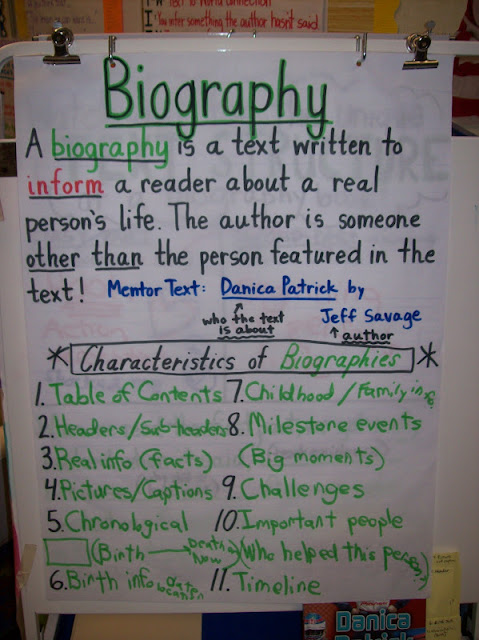 "You infer something the author hasn't said
Biography
A biography is a text written to
inform a reader about a real
person's life. The author is someone
other than the person featured in the
text! Mentor Text: Danica Patrick by
who the text is about
Jeff Savage
author
* Characteristics of Biographies *
1. Table of Contents
2. Headers/Sub-headers
3. Real info (facts)
4. Pictures/Captions
5. Chronological
(Birth → Death/Now)
6. Birth info
7. Childhood/Family info
8. Milestone events
(Big moments)
9. Challenges
10. Important people
(who helped this person)
11. Timeline
Danica